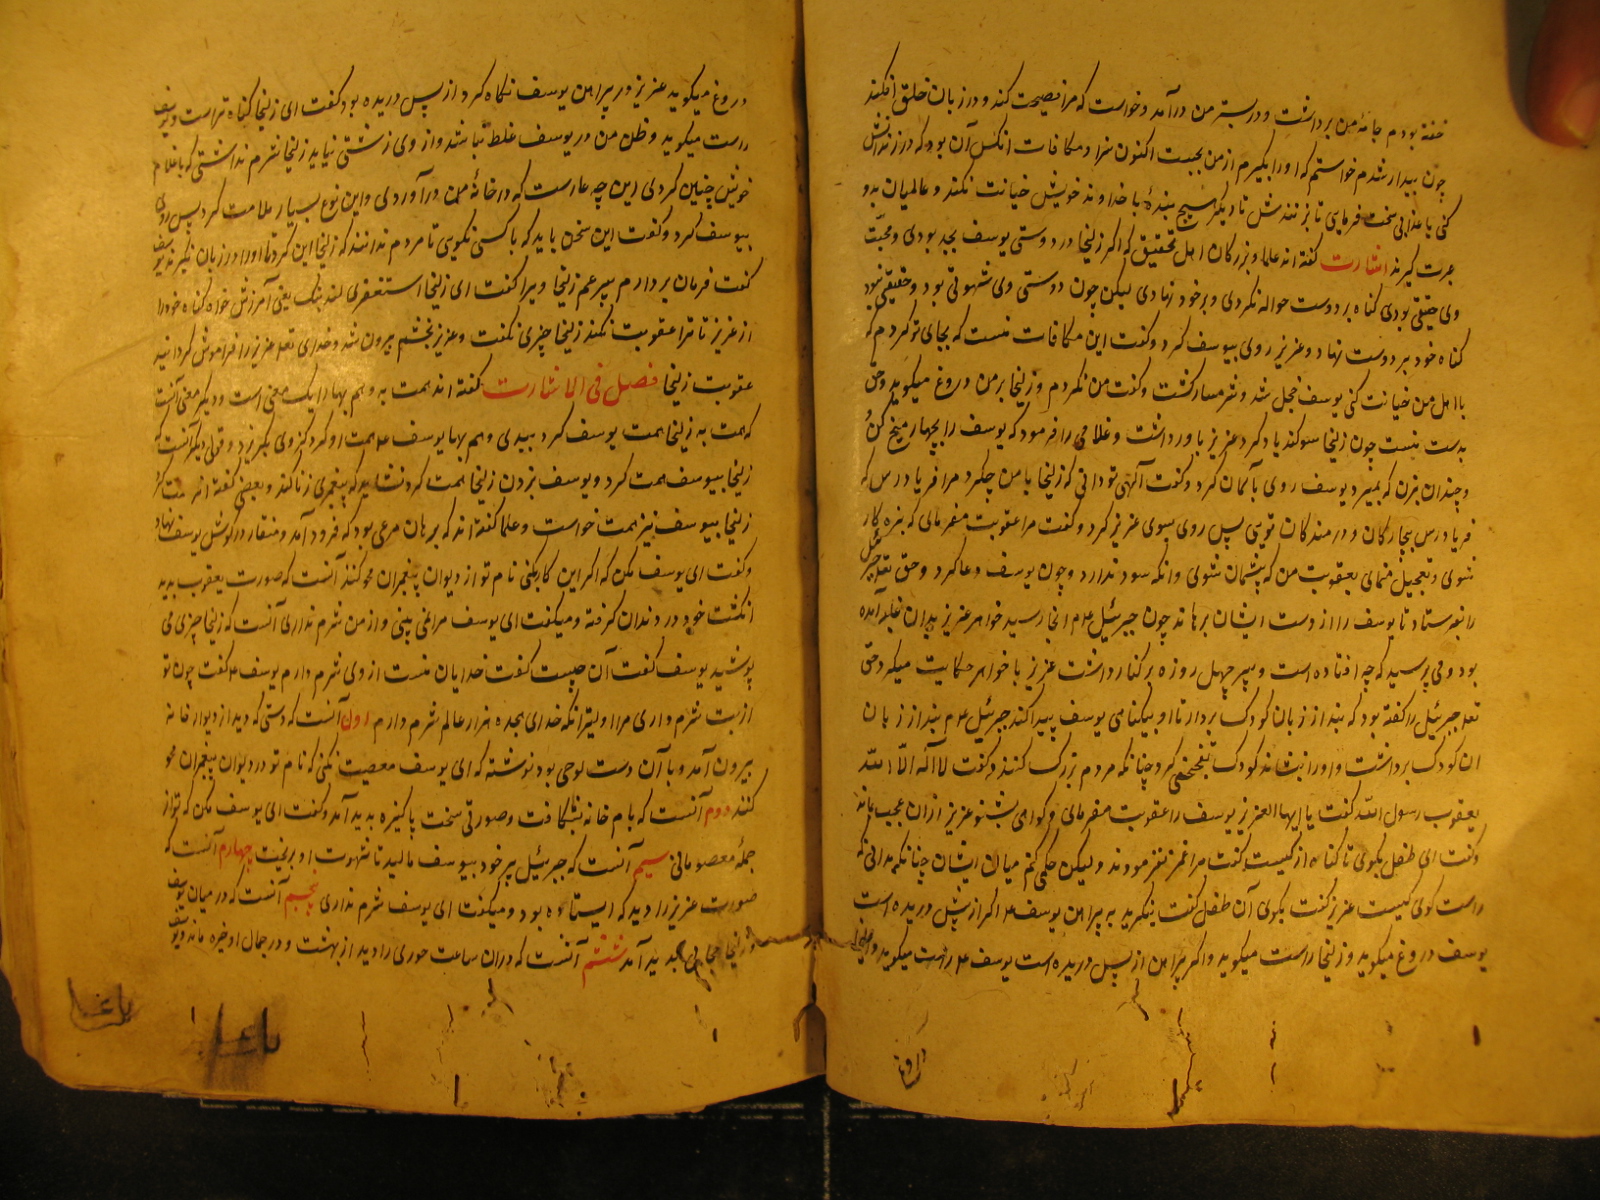 خفته بودم جامهٔ من برداشت و در بستر من درآمد و خواست که مرا فضیحت کند و در زبان خلق افکند
چون بیدار شدم خواستم که او را بگیرم از من بجست اکنون سزا و مکافات آنکس آن بود که در زندانش
کنی یا عذابی سخت فرمای تا بزنندش تا دیگر هیچ بندهٔ با خداوند خویش خیانت نکند و عالمیان بدو
عبرت گیرند اشارت گفته‌اند علما و بزرگان اهل تحقیق که اگر زلیخا در دوستی یوسف بجد بودی و محبّت
وی حقیقی بودی گناه بر دوست حواله نکردی و بر خود نهادی لیکن چون دوستی وی شهوتی بود و حقیقی نبود
گناه خود بر دوست نهاد و عزیز روی بیوسف کرد و گفت این مکافات منست که بجای تو کردم که
با اهل من خیانت کنی یوسف خجل شد و شرمسار گشت و گفت من نکردم و زلیخا بر من دروغ میگوید و حق
بدست منست چون زلیخا سوگند یاد کرد عزیز باور داشت و غلامی را فرمود که یوسف را بچهار میخ کن
و چندان بزن که بمیرد یوسف روی بآسمان کرد و گفت آلهی تو دانی که زلیخا با من چکرد مرا فریاد رس که
فریادرس بیچارگان و درمندگان تویی پس روی بسوی عزیز کرد و گفت مرا عقوبت مفرمای که بزه کار
شوی و تعجیل منمای بعقوبت من که پشیمان شوی و آنکه سود ندارد و چون یوسف دعا کرد و حق تعه جبرئیل
را بفرستاد تا یوسف را از دست ایشان برهاند چون جبرئیل علم آنجا رسید خواهر عزیز بدان آمده
بود و می پرسید که چه افتاده است و پسر چهل روزه بر کنار داشت عزیز با خواهر حکایت میکرد حق
تعه جبرئیل را گفته بود که بند از زبان کودک بردار تا او بیگناهی یوسف پیدا کند جبرئیل علم بند از زبان
آن کودک برداشت و او را بنشاند کودک کرد چنانکه مردم بزرگ کنند و گفت لا اله الّا اللّه
یعقوب رسول اللّه گفت یا ایها العزیز یوسف را عقوبت مفرمای و گواهی بشنو عزیز از آن عجب ماند
و گفت ای طفل بگوی تا گناه از کیست گفت مرا غمز نفرمودند ولیکن حکمی کنم میان ایشان چنانکه بدانی که
راست گوی کیست عزیز گفت بگوی آن طفل گفت بنگرید به پیراهن یوسف اگر از پیش دریده است
یوسف دروغ میگوید و زلیخا راست میگوید و اگر پیراهن از پس دریده است یوسف راست میگوید و زلیخا
دروغ
دروغ میگوید عزیز در پیراهن یوسف نگاه کرد از پس دریده بود گفت ای زلیخا گناه تراست و یوسف
راست میگوید و ظن من در یوسف غلط نباشد و از وی زشتی نیاید زلیخا شرم نداشتی که با غلام
خویش چنین کردی این چه عارست که در خانهٔ من درآوردی و این نوع بسیار ملامت کرد پس روی
بیوسف کرد و گفت این سخن باید که با کسی نگوئی تا مردم ندانند که زلیخا این کرد تا او را در زبان نگیرند یوسف
گفت فرمان بردارم پسر عم زلیخا ویرا گفت ای زلیخا استغفری لذنبک یعنی آمرزش خواه گناه خود را
از عزیز تا ترا عقوبت نکند زلیخا چیزی نگفت و عزیز بخشم بیرون شد و خدای تعه عزیز را فراموش گردانید
عقوبت زلیخا فصل فی الاشارت گفته‌اند همت به و هم بها را یک معنی است و دیگر معنی آنست
که همت به زلیخا همت یوسف کرد ببدی و هم بها یوسف همت او کرد کز وی بگریزد و قولی دیگر آنست که
زلیخا بیوسف همت کرد و یوسف بزدن زلیخا همت کرد نشاید که پیغمبری زنا کند و بعضی گفته‌اند
زلیخا بیوسف نیز همت خواست و علما گفته‌اند که برهان مرغی بود که فرود آمد و منقار در گوش یوسف نهاد
و گفت ای یوسف مکن که اگر این کار بکنی نام تو از دیوان پیغمبران محو کنند آنست که صورت یعقوب بدید
انگشت خود در دندان گرفته و میگفت ای یوسف مرا نمی بینی و از من شرم نداری آنست که زلیخا چیزی می
پوشید یوسف گفت آن چیست گفت خدایان منست از وی شرم دارم یوسف گفت چون تو
از بت شرم داری مرا اولیتر آنکه خدای هجده هزار عالم شرم دارم اول آنست که دستی که دید از دیوار خانه
بیرون آمد و با آن دست لوحی بود نوشته که ای یوسف معصیت نکنی که نام تو در دیوان پیغمبران محو
کنند دوم آنست که بام خانه بشکافت و صورتی سخت پاکیزه پدید آمد و گفت ای یوسف مکن که تو از
جملهٔ معصومانی سیم آنست که جبرئیل پر خود بیوسف مالید تا شهوت او بریخت چهارم آنست که
صورت عزیز را دید که ایستاده بود و میگفت ای یوسف شرم نداری پنجم آنست که در میان یوسف
و زلیخا حجابی پدید آمد ششم آنست که در آن ساعت حوری را دید از بهشت و در جمال او خیره ماند و یوسف